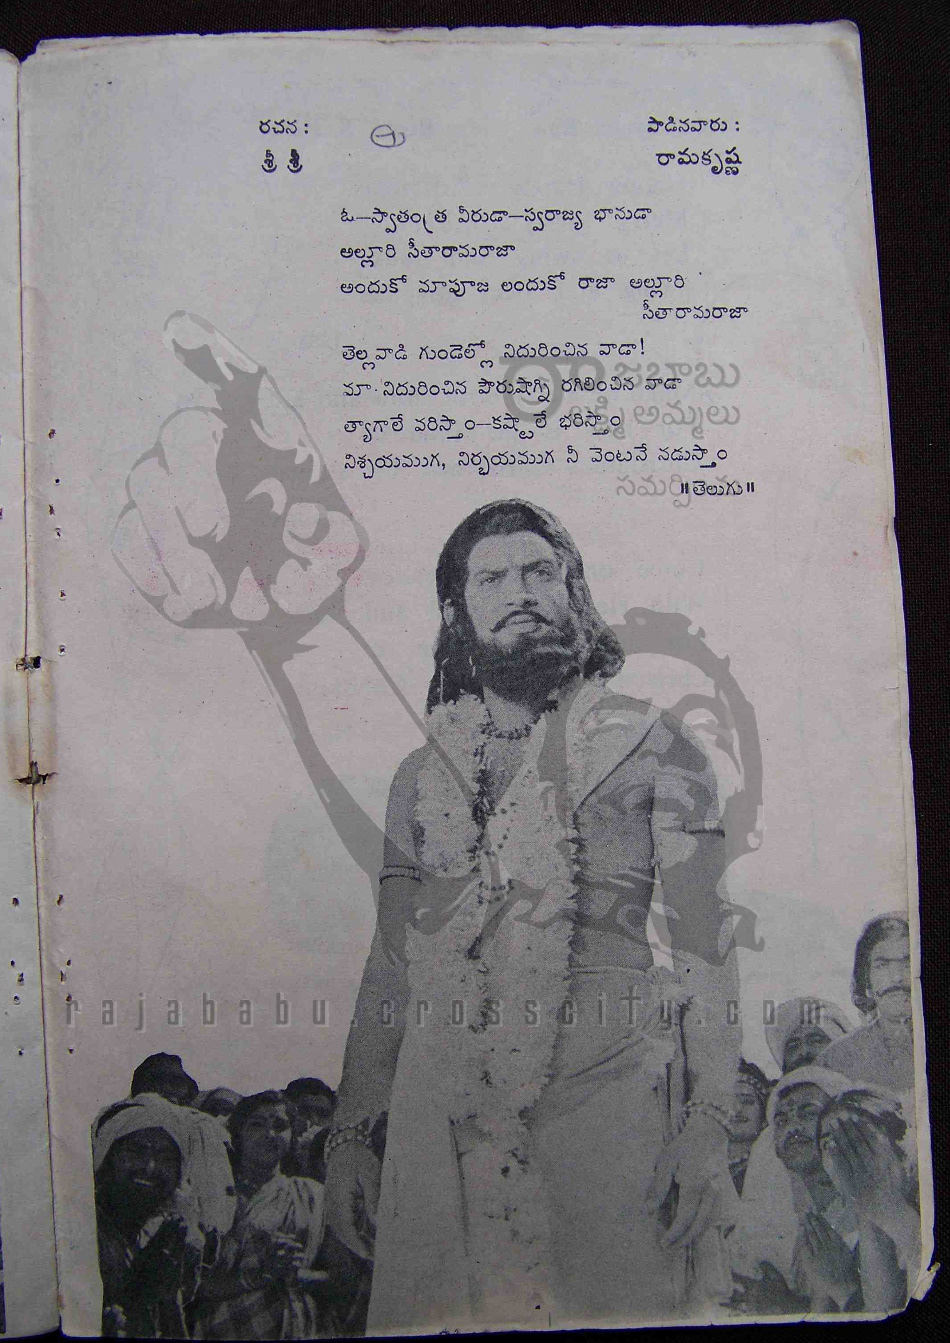 రచన :
పాడినవారు :
శ్రీ శ్రీ
రామకృష్ణ
ఓ—స్వాతంత్ర వీరుడా—స్వరాజ్య భానుడా
అల్లూరి సీతారామరాజా
అందుకో మాపూజ లందుకో రాజా అల్లూరి
సీతారామరాజా
తెల్లవాడి గుండెల్లో నిదురించిన వాడా!
మా నిదురించిన పౌరుషాగ్ని రగిలించిన వాడా
త్యాగాలే వరిస్తాం—కష్టాలే భరిస్తాం
నిశ్చయముగ, నిర్భయముగ నీ వెంటనే నడుస్తాం
॥తెలుగు॥
రాజబాబు
లక్ష్మి అమ్మలు
rajababu.crosscity.com